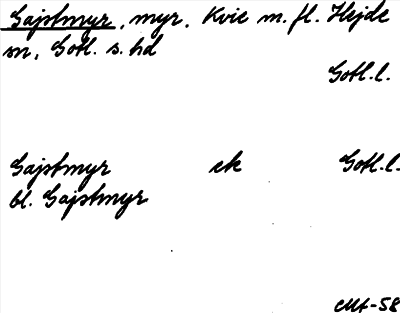 Gajstmyr, myr, Kvie m. fl. Hejde
sn, Gotl. s. hd
Gotl. l.
Gajstmyr ek Gotl. l.
bl. Gajstmyr
-58